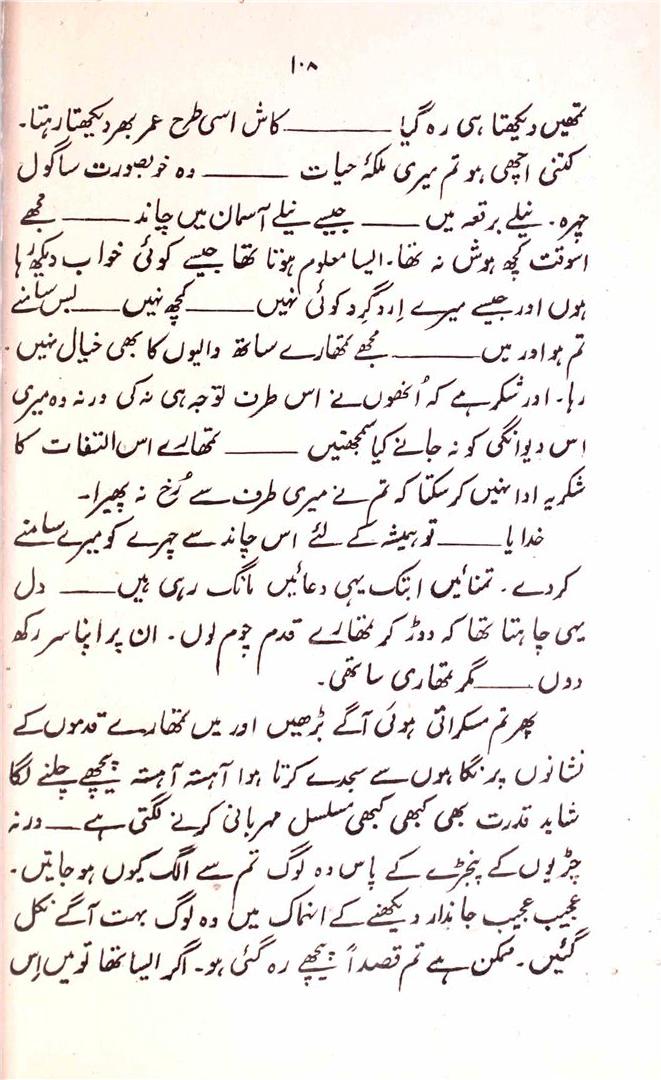 ۱۰۸
تمھیں دیکھتا ہی رہ گیا ——— کاش اسی طرح عمر بھر دیکھتا رہتا۔
کتنی اچھی ہو تم میری ملکۂ حیات ——— وہ خوبصورت سا گول
چہرہ۔ نیلے برقعہ میں —— جیسے نیلے آسمان میں چاند —— مجھے
اسوقت کچھ ہوش نہ تھا۔ ایسا معلوم ہوتا تھا جیسے کوئی خواب دیکھ رہا
ہوں اور جیسے میرے اِرد گِرد کوئی نہیں —— کچھ نہیں —— بس سامنے
تم ہو اور میں ——— مجھے تمھارے ساتھ والیوں کا بھی خیال نہیں
رہا۔ اور شکر ہے کہ اُنھوں نے اس طرف توجہ ہی نہ کی ورنہ وہ میری
اس دیوانگی کو نہ جانے کیا سمجھتیں —— تمھارے اس التفات کا
شکریہ ادا نہیں کر سکتا کہ تم نے میری طرف سے رُخ نہ پھیرا۔
خدایا —— تو ہمیشہ کے لئے اس چاند سے چہرے کو میرے سامنے
کر دے۔ تمنائیں ابتک یہی دعائیں مانگ رہی ہیں —— دل
یہی چاہتا تھا کہ دوڑ کر تمھارے قدم چوم لوں۔ ان پر اپنا سر رکھ
دوں —— مگر تمھاری ساتھی۔
پھر تم مسکراتی ہوئی آگے بڑھیں اور میں تمھارے قدموں کے
نشانوں پر نگاہوں سے سجدے کرتا ہوا آہستہ آہستہ پیچھے چلنے لگا
شاید قدرت بھی کبھی کبھی مسلسل مہربانی کرنے لگتی ہے — ورنہ
چڑیوں کے پنجڑے کے پاس وہ لوگ تم سے الگ کیوں ہو جاتیں۔
عجیب عجیب جاندار دیکھنے کے انہماک میں وہ لوگ بہت آگے نکل
گئیں۔ ممکن ہے تم قصداً پیچھے رہ گئی ہو۔ اگر ایسا تھا تو میں اِس